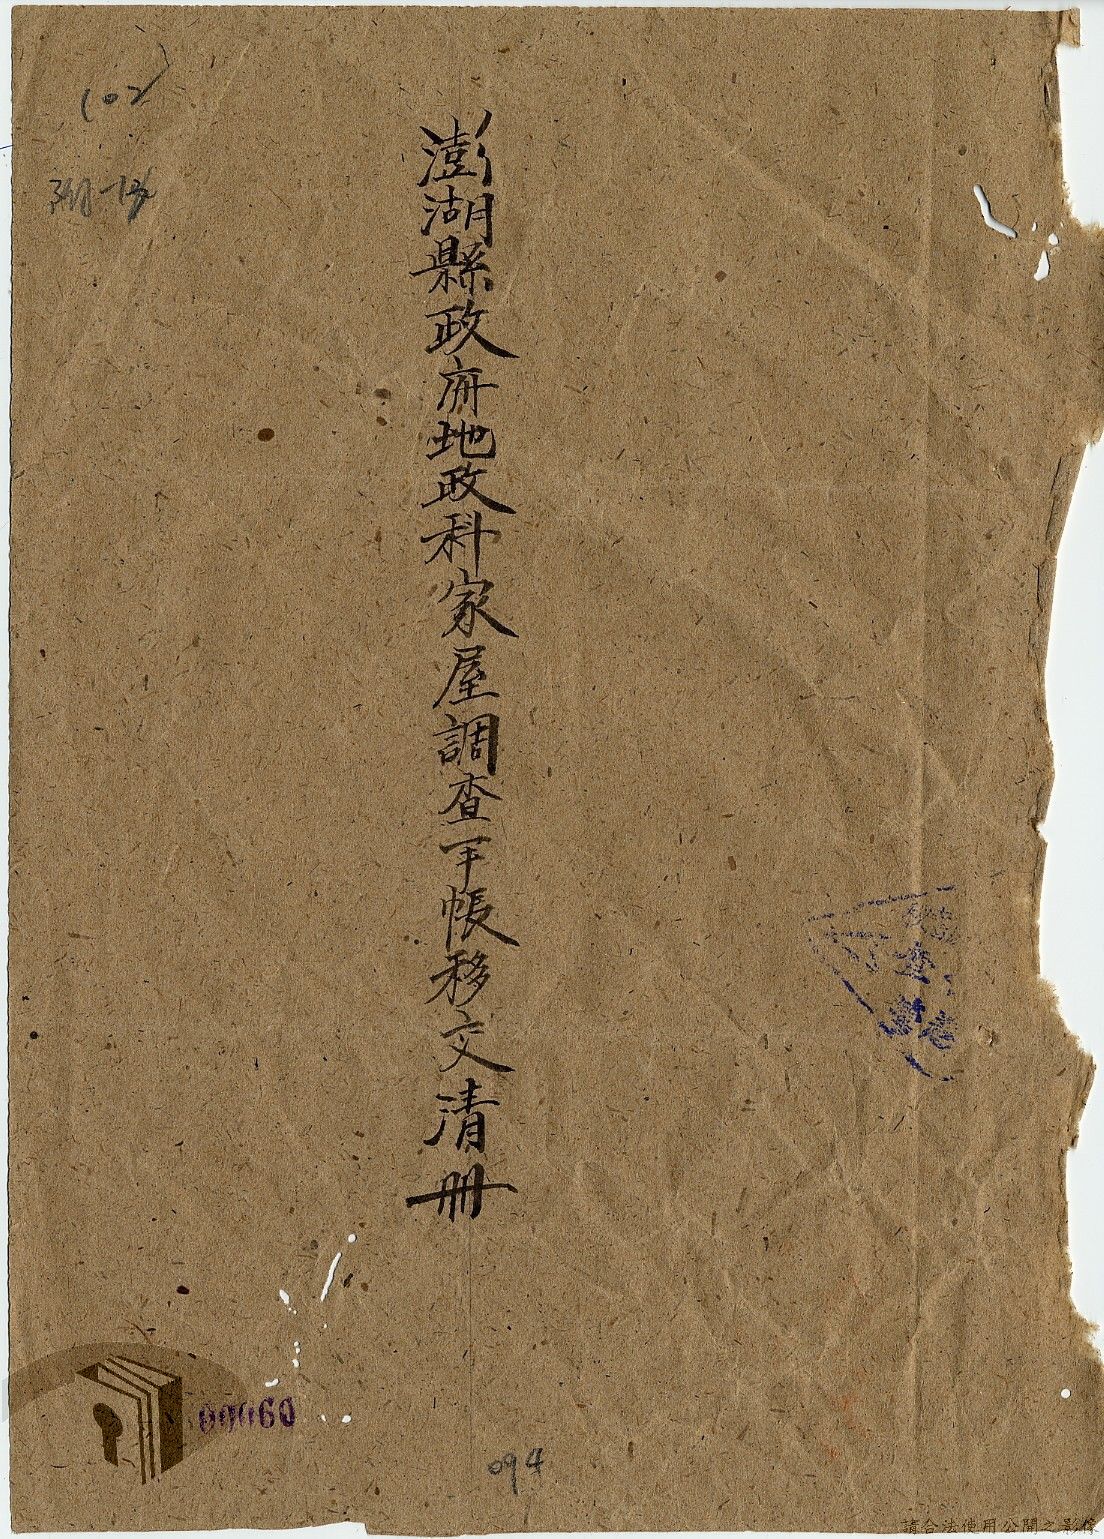 102
澎湖縣政府地政科家屋調查手帳移交清冊
00060
094
請合法使用公開之影像